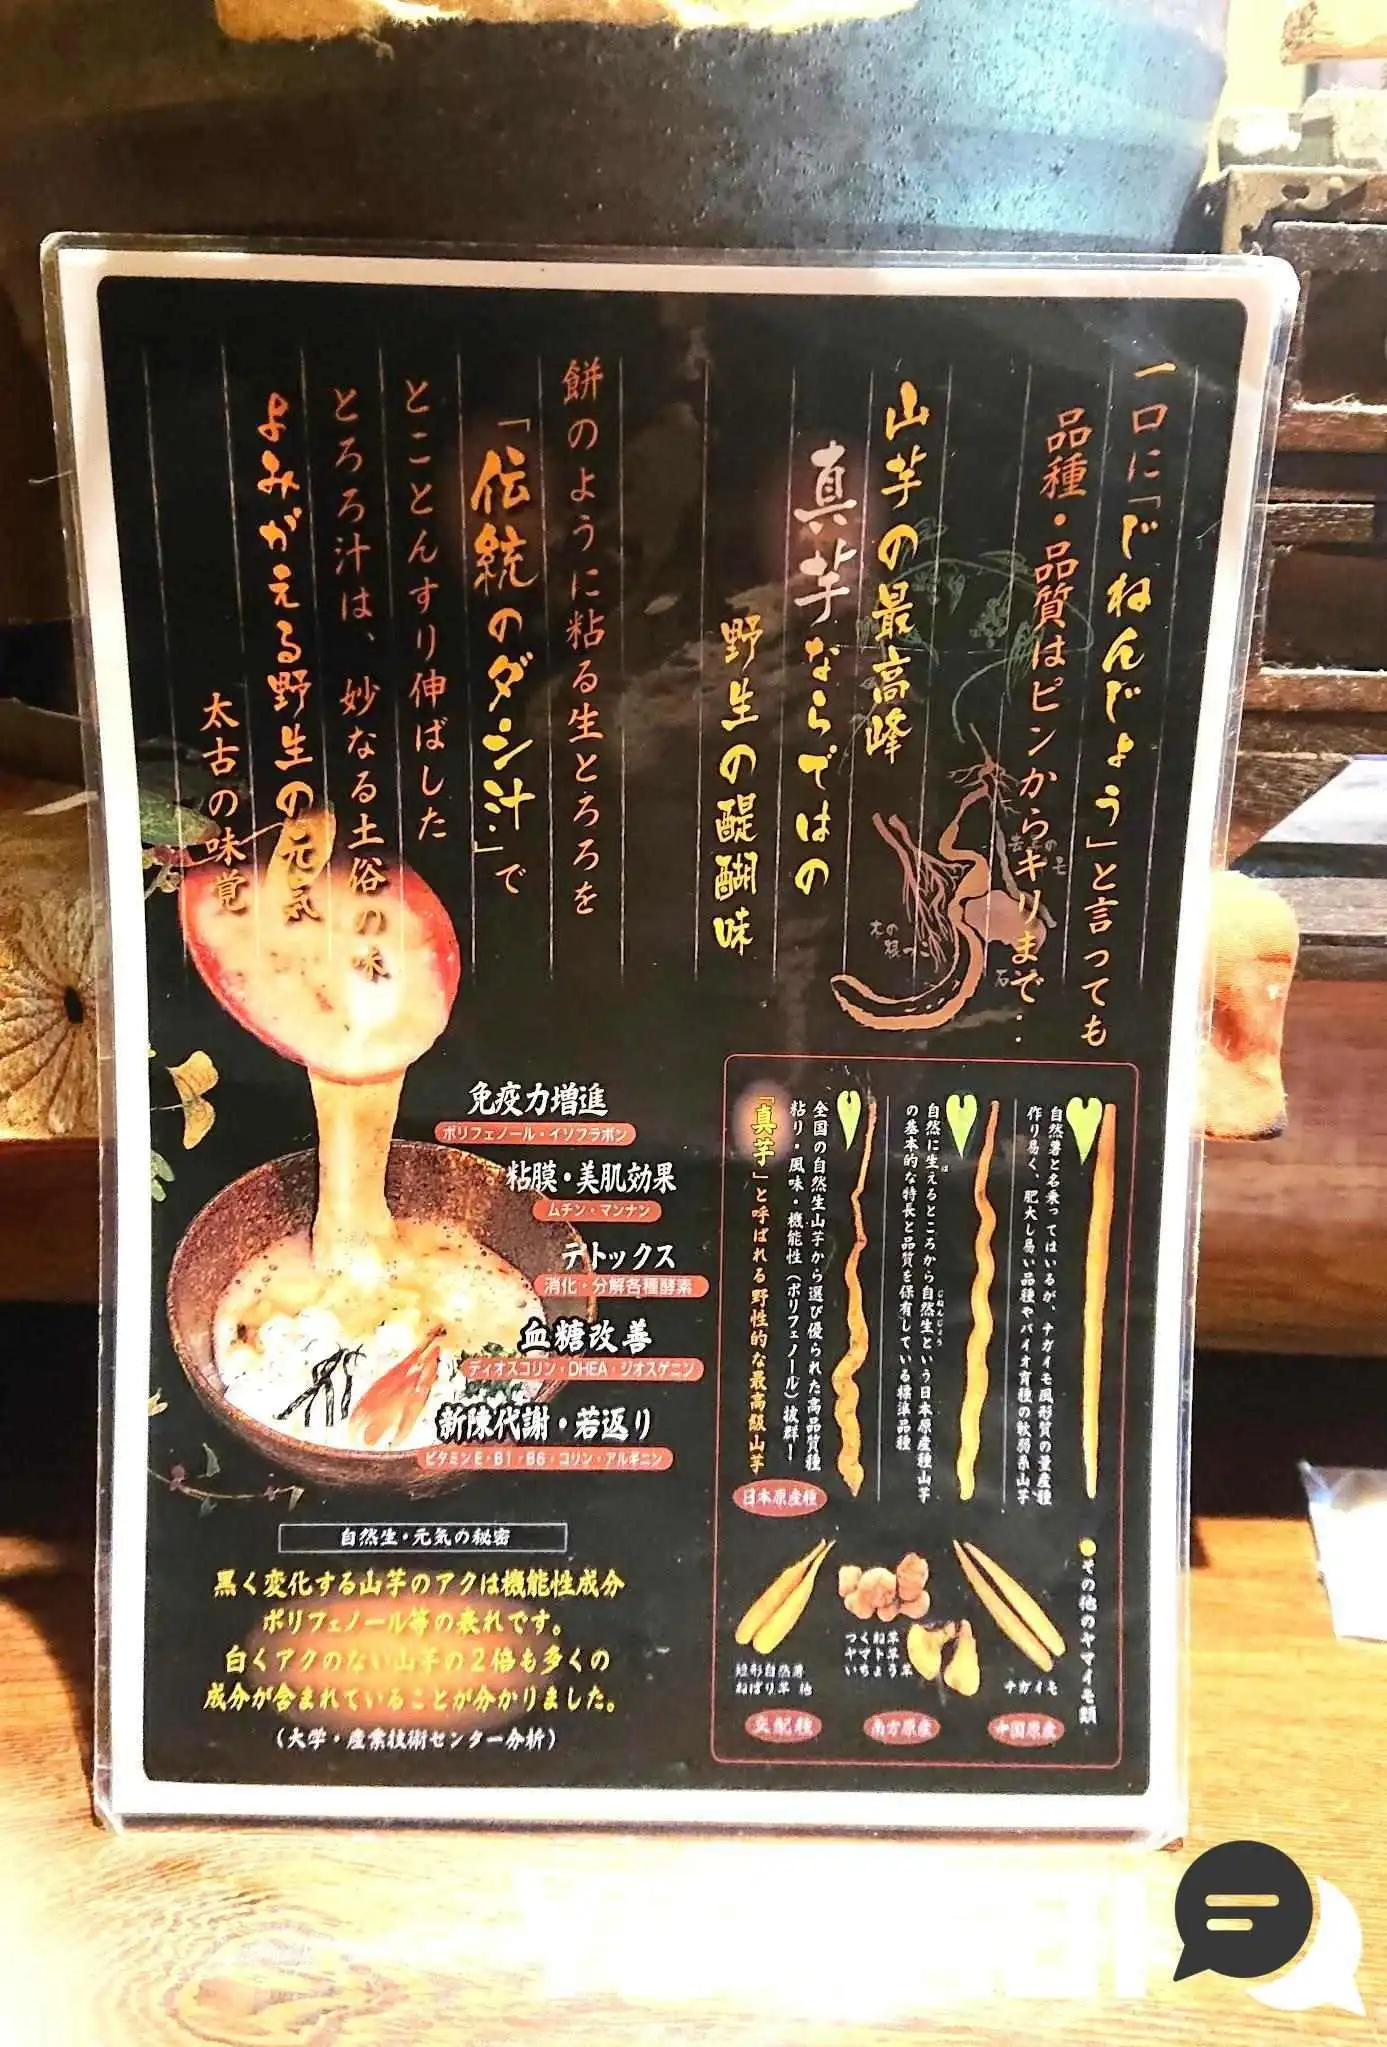 一口に「じねんじょう」と言っても
品種・品質はピンからキリまで・・
山芋の最高峰
真芋ならではの
野生の醍醐味
餅のように粘る生とろろを
「伝統のダシ汁」で
とことんすり伸ばした
とろろ汁は、妙なる土俗の味
よみがえる野生の元気
太古の味覚
木の根っこ
石
免疫力増進
ポリフェノール・イソフラボン
粘膜・美肌効果
ムチン・マンナン
デトックス
消化・分解各種酵素
血糖改善
ディオスコリン・DHEA・ジオスゲニン
新陳代謝・若返り
ビタミンE・B1・B6・コリン・アルギニン
自然生・元気の秘密
黒く変化する山芋のアクは機能性成分
ポリフェノール等の表れです。
白くアクのない山芋の2倍も多くの
成分が含まれていることが分かりました。
(大学・産業技術センター分析)
自然薯と名乗ってはいるが、ナガイモ風形質の量産種
作り易く、肥大し易い品種やバイオ育種の軟弱系山芋
自然に生えるところから自然生という日本原産種山芋
の基本的な特長と品質を保有している標準品種
全国の自然生山芋から選び優られた高品質種
粘り・風味・機能性(ポリフェノール)抜群!
「真芋」と呼ばれる野性的な最高級山芋
日本原産種
●その他のヤマイモ類
ナガイモ
中国原産
つくね芋
ヤマト芋
いちょう芋
南方原産
短形自然薯
ねばり芋 他
交配種